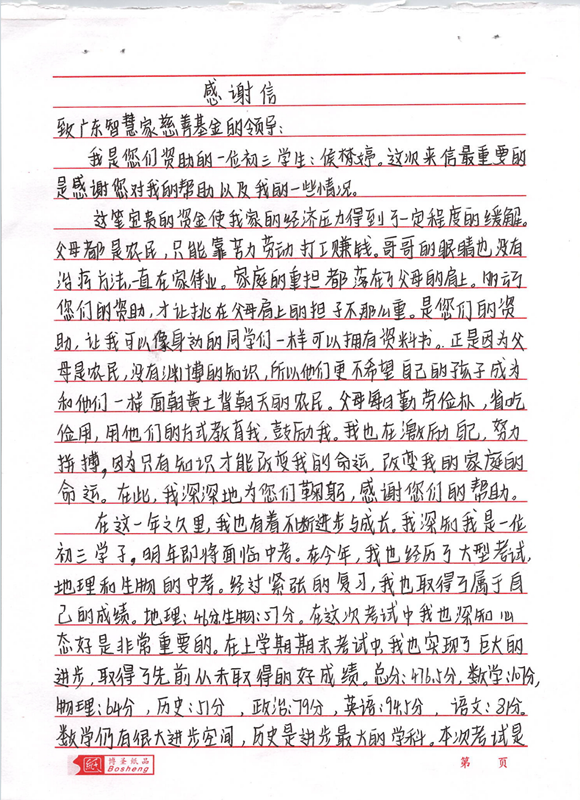 感谢信
致广东智慧家慈善基金的领导:
我是您们资助的一位初三学生:侯婷。这次来信最重要的
是感谢您对我的帮助以及我的一些情况。
这笔宝贵的资金使我家的经济压力得到了一定程度的缓解。
父母都是农民,只能靠苦力劳动打工赚钱。哥哥的眼睛也没有
治疗方法,一直在家待业。家庭的重担都落在了父母的肩上。
您们的资助,才让挑在父母肩上的担子不那么重。是您们的资
助,让我可以像身边的同学们一样可以拥有资料书。正是因为父
母是农民,没有渊博的知识,所以他们更不希望自己的孩子成为
和他们一样面朝黄土背朝天的农民。父母每日勤劳俭朴,省吃
俭用,用他们的方式教育我,鼓励我。我也在激励自己,努力
拼搏,因为只有知识才能改变我的命运,改变我的家庭的
命运。在此,我深深地为您们鞠躬,感谢您们的帮助。
在这一年之久里,我也有着不断进步与成长。我深知我是一位
初三学子,明年即将面临中考。在今年,我也经历了大型考试,
地理和生物的中考。经过紧张的复习,我也取得了属于自
己的成绩。地理:46分生物:57分。在这次考试中我也深知心
态好是非常重要的。在上学期期末考试中,我也实现了巨大的
进步,取得了先前从未取得的好成绩。总分:476.5分,数学:107分,
物理:64分,历史:51分,政治:79分,英语:94.5分,语文:81分。
数学仍有很大进步空间,历史是进步最大的学科。本次考试是
博圣纸品
Bosheng
第 页